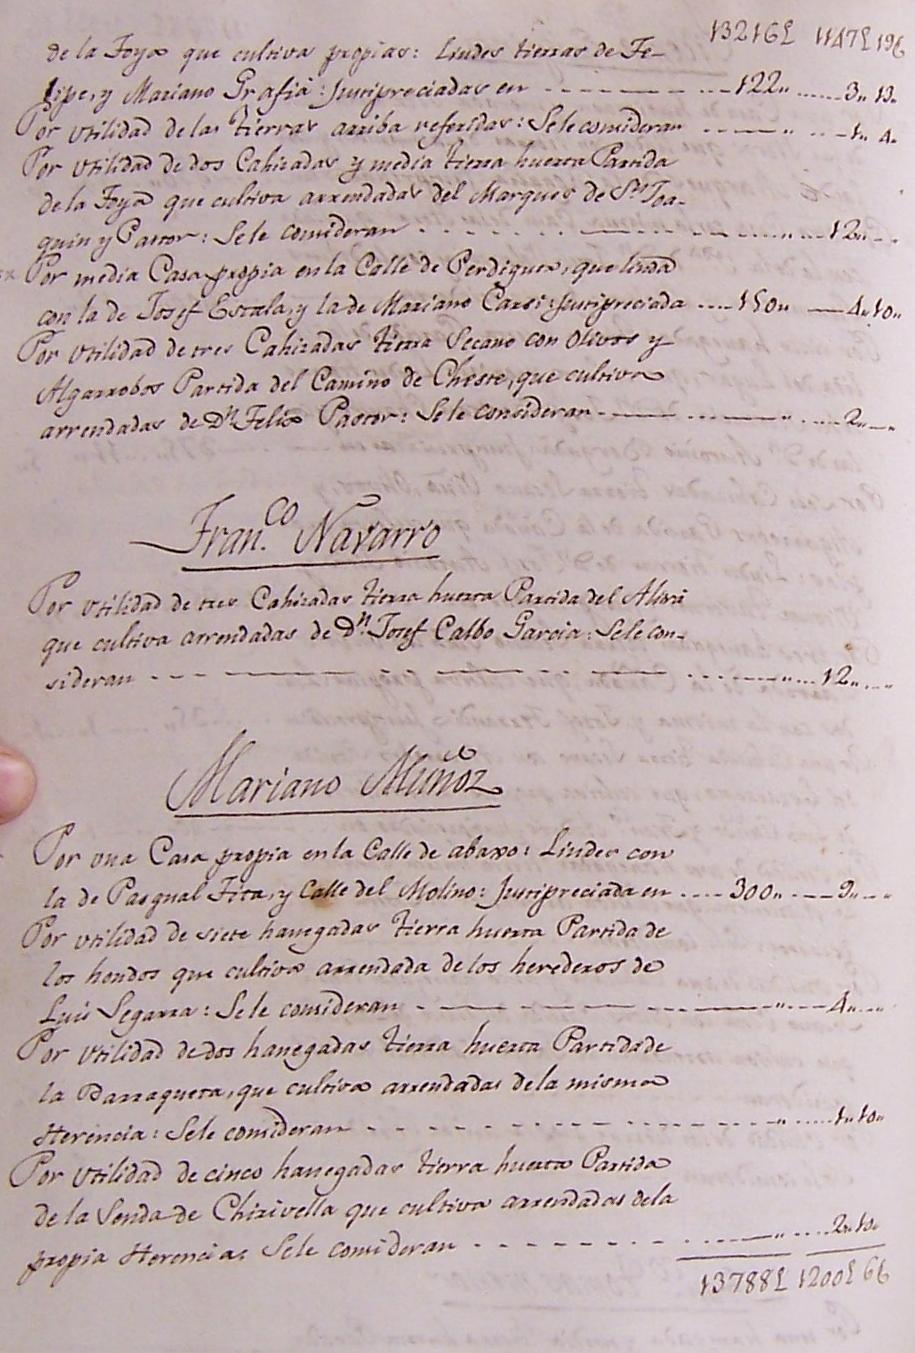 13216£ 1147£19₢
de la Foya que cultiva propias: Lindes tierras de Fe-
lipe, y Mariano Grafiá: Justipreciadas en - - - 122" .... 3" 13"
Por utilidad de las tierras arriba referidas: Sele consideran - - - " - - 1" 4"
Por utilidad de dos Cahizadas y media tierra huerta Partida
de la Foya que cultiva arrendadas del Marques de Sn. Joa-
quin y Pastor: Sele consideran - - - " .... 12" - "
Por media Casa propia en la Calle de Perdiguer, que linda
con la de Josef Escala, y la de Mariano Carsi: Justipreciada .... 150" — 4" 10"
Por utilidad de tres Cahizadas tierra Secano con Olivos y
Algarrobos Partida del Camino de Cheste, que cultiva
arrendadas de Dn. Felix Pastor: Sele consideran - - - " .... 2" — "
Fran.co Navarro
Por utilidad de tres Cahizadas tierra huerta Partida del
que cultiva arrendadas de Dn. Josef Calbo Garcia: Sele con-
sideran - - - " .... 12" .. "
Mariano Muñoz
Por una Casa propia en la Calle de abaxo: Lindes con
la de Pasqual Fita, y Calle del Molino: Justipreciada en .... 300" — 9" - "
Por utilidad de siete hanegadas tierra huerta Partida de
los hondos que cultiva arrendada de los herederos de
Luis Segarra: Sele consideran - - - " .... 4" .. "
Por utilidad de dos hanegadas tierra huerta Partida de
la Barraqueta, que cultiva arrendadas de la misma
Herencia: Sele consideran - - - " .... 1" 10"
Por utilidad de cinco hanegadas tierra huerta Partida
de la Senda de Chirivella que cultiva arrendadas dela
propia Herencia: Sele consideran - - - " .... 2" 10"
13788£ 1200£ 6₢